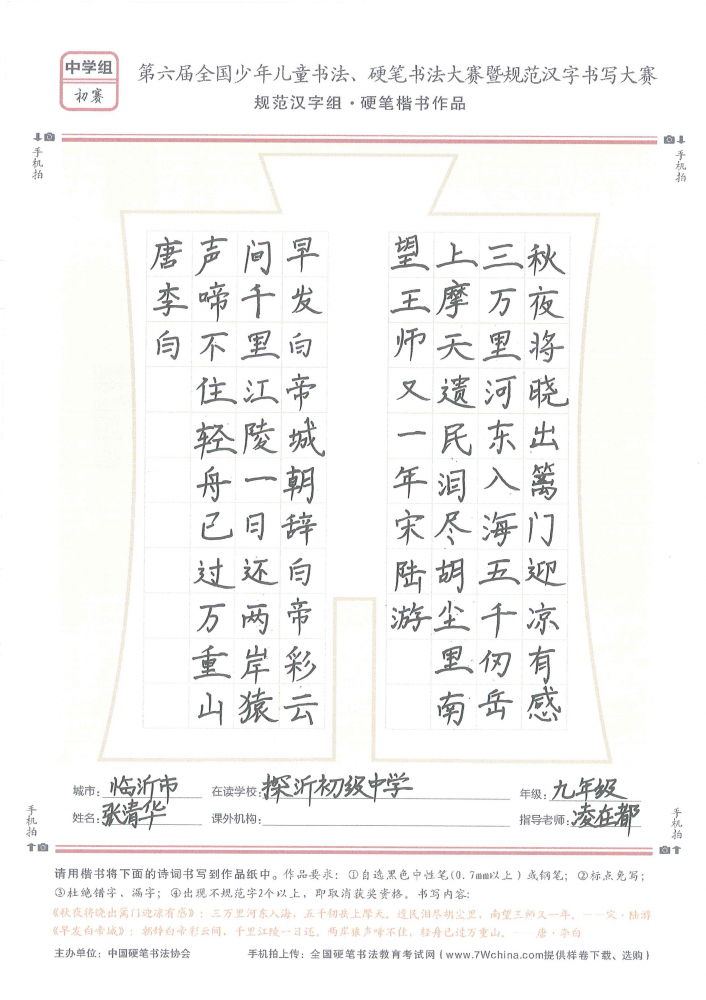 中学组
初赛
第六届全国少年儿童书法、硬笔书法大赛暨规范汉字书写大赛
规范汉字组·硬笔楷书作品
手机拍
手机拍
秋夜将晓出篱门迎凉有感
三万里河东入海五千仞岳
上摩天遗民泪尽胡尘里南
望王师又一年宋陆游
早发白帝城朝辞白帝彩云
间千里江陵一日还两岸猿
声啼不住轻舟已过万重山
唐李白
城市：临沂市 在读学校：探沂初级中学 年级：九年级
姓名：张清华 课外机构： 指导老师：凌在都
手机拍
手机拍
请用楷书将下面的诗词书写到作品纸中。作品要求：①自选黑色中性笔(0.7mm以上)或钢笔；②标点免写；
③杜绝错字、漏字；④出现不规范字2个以上，即取消获奖资格。书写内容：
《秋夜将晓出篱门迎凉有感》：三万里河东入海，五千仞岳上摩天。遗民泪尽胡尘里，南望王师又一年。——宋·陆游
《早发白帝城》：朝辞白帝彩云间，千里江陵一日还。两岸猿声啼不住，轻舟已过万重山。——唐·李白
主办单位：中国硬笔书法协会 手机拍上传：全国硬笔书法教育考试网（www.7Wchina.com提供样卷下载、选购）